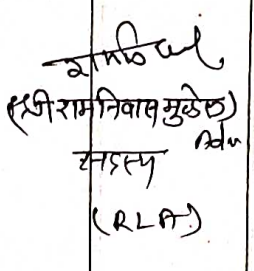 (श्री रामनिवास मुळेल)
Adv
सदस्य
(RLA)